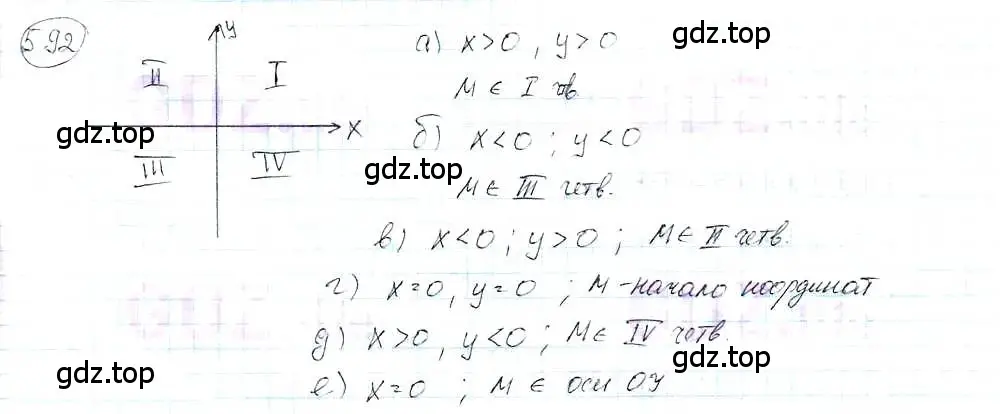 592
y
II
I
x
III
IV
а) x>0, y>0
M ∈ I чтв.
б) x<0; y<0
M ∈ III четв.
в) x<0; y>0; M ∈ II четв.
г) x=0, y=0; M - начало координат
д) x>0, y<0; M ∈ IV четв.
е) x=0; M ∈ оси OY
gdz.top
gdz.top
gdz.top
gdz.top
gdz.top
gdz.top